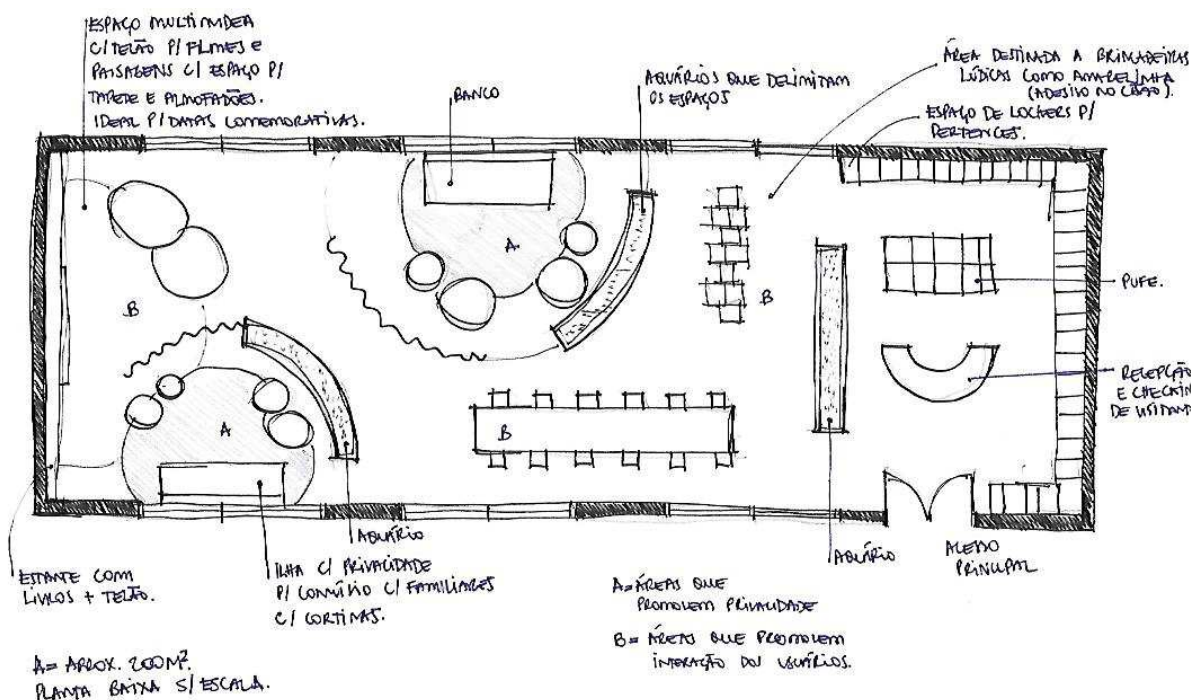 ESPAÇO MULTIMIDEA
C/TELÃO P/ FILMES E
PAISAGENS C/ ESPAÇO P/
TAPETE E ALMOFADÕES.
IDEAL P/DATAS COMEMORATIVAS.
BANCO
AQUÁRIOS QUE DELIMITAM
OS ESPAÇOS
ÁREA DESTINADA A BRINCADEIRAS
LÚDICAS COMO AMARELINHA
(ADESIVO NO CHÃO).
ESPAÇO DE LOCKERS P/
PERTENCES.
A
B
B
PUFE.
RECEPÇÃO
E CHECKIN
DE VISITANT
A
B
AQUÁRIO
AQUÁRIO
ACESSO
PRINCIPAL
ESTANTE COM
LIVROS + TELÃO.
ILHA C/ PRIVACIDADE
P/ CONVÍVIO C/ FAMILIARES
C/ CORTINAS.
A=ÁREAS QUE
PROMOVEM PRIVACIDADE
B= ÁREAS QUE PROMOVEM
INTERAÇÃO DOS USUÁRIOS.
A= APROX. 200M².
PLANTA BAIXA S/ESCALA.